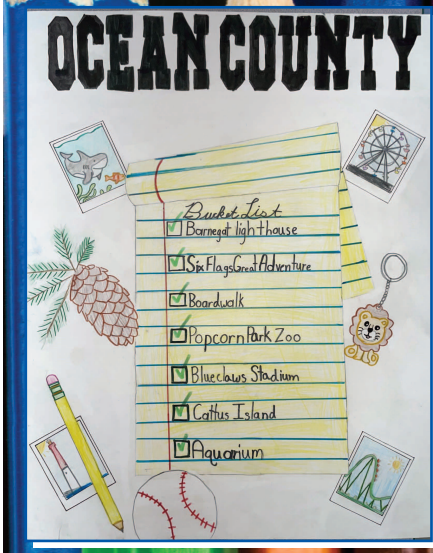 OCEAN COUNTY
Bucket List
Barnegat lighthouse
Six Flags Great Adventure
Boardwalk
Popcorn Park Zoo
Blueclaws Stadium
Cattus Island
Aquarium